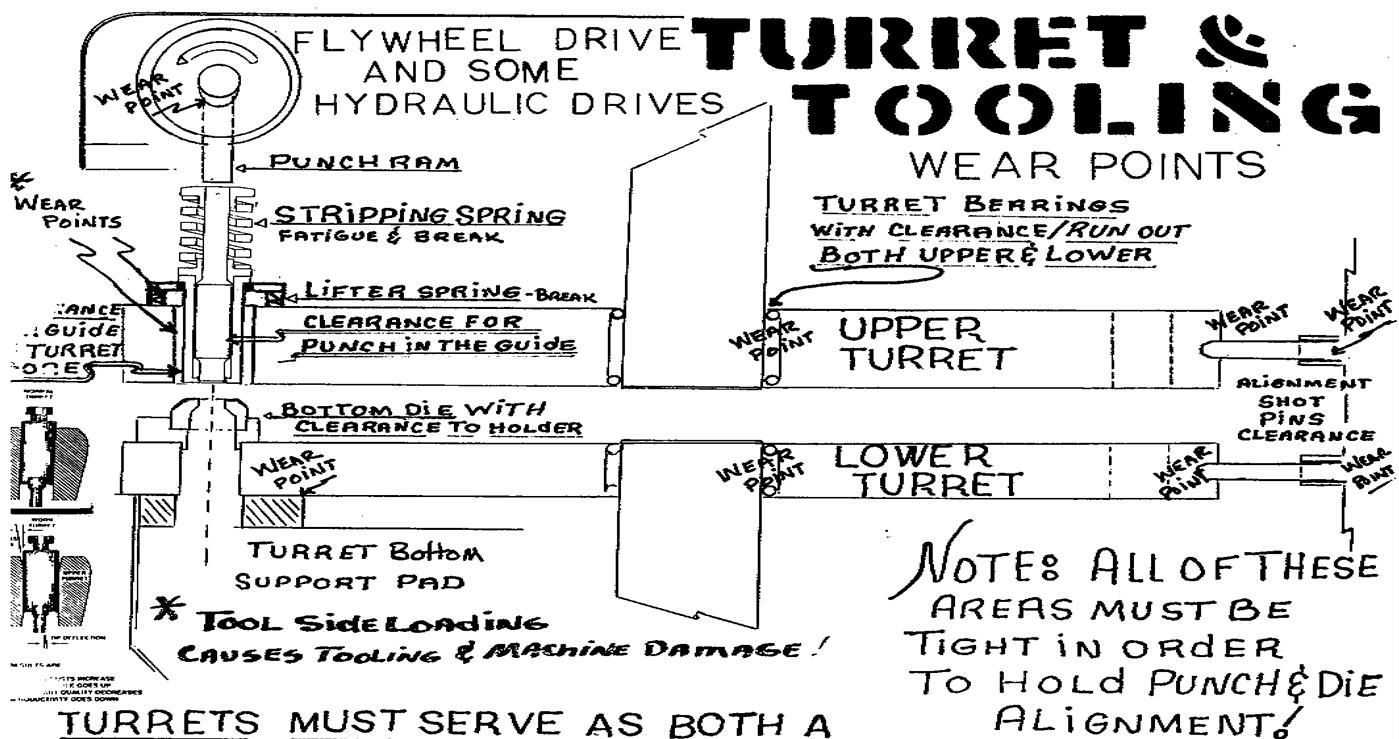 FLYWHEEL DRIVE
AND SOME
HYDRAULIC DRIVES
TURRET &
TOOLING
WEAR POINTS
WEAR
POINT
PUNCH RAM
* WEAR
POINTS
STRIPPING SPRING
FATIGUE & BREAK
TURRET BEARINGS
WITH CLEARANCE/RUN OUT
BOTH UPPER & LOWER
LIFTER SPRING-BREAK
CLEARANCE FOR
PUNCH IN THE GUIDE
GUIDE
TURRET
WEAR
POINT
UPPER
TURRET
WEAR
POINT
WEAR
POINT
ALIGNMENT
SHOT
PINS
CLEARANCE
BOTTOM DIE WITH
CLEARANCE TO HOLDER
WEAR
POINT
WEAR
POINT
LOWER
TURRET
WEAR
POINT
WEAR
POINT
TURRET BOTTOM
SUPPORT PAD
* TOOL SIDE LOADING
CAUSES TOOLING & MACHINE DAMAGE!
NOTE: ALL OF THESE
AREAS MUST BE
TIGHT IN ORDER
TO HOLD PUNCH & DIE
ALIGNMENT!
WORN
TURRET
UPPER
TURRET
TIP DEFLECTION
INCREASE
GOES UP
QUALITY DECREASES
GOES DOWN
TURRETS MUST SERVE AS BOTH A